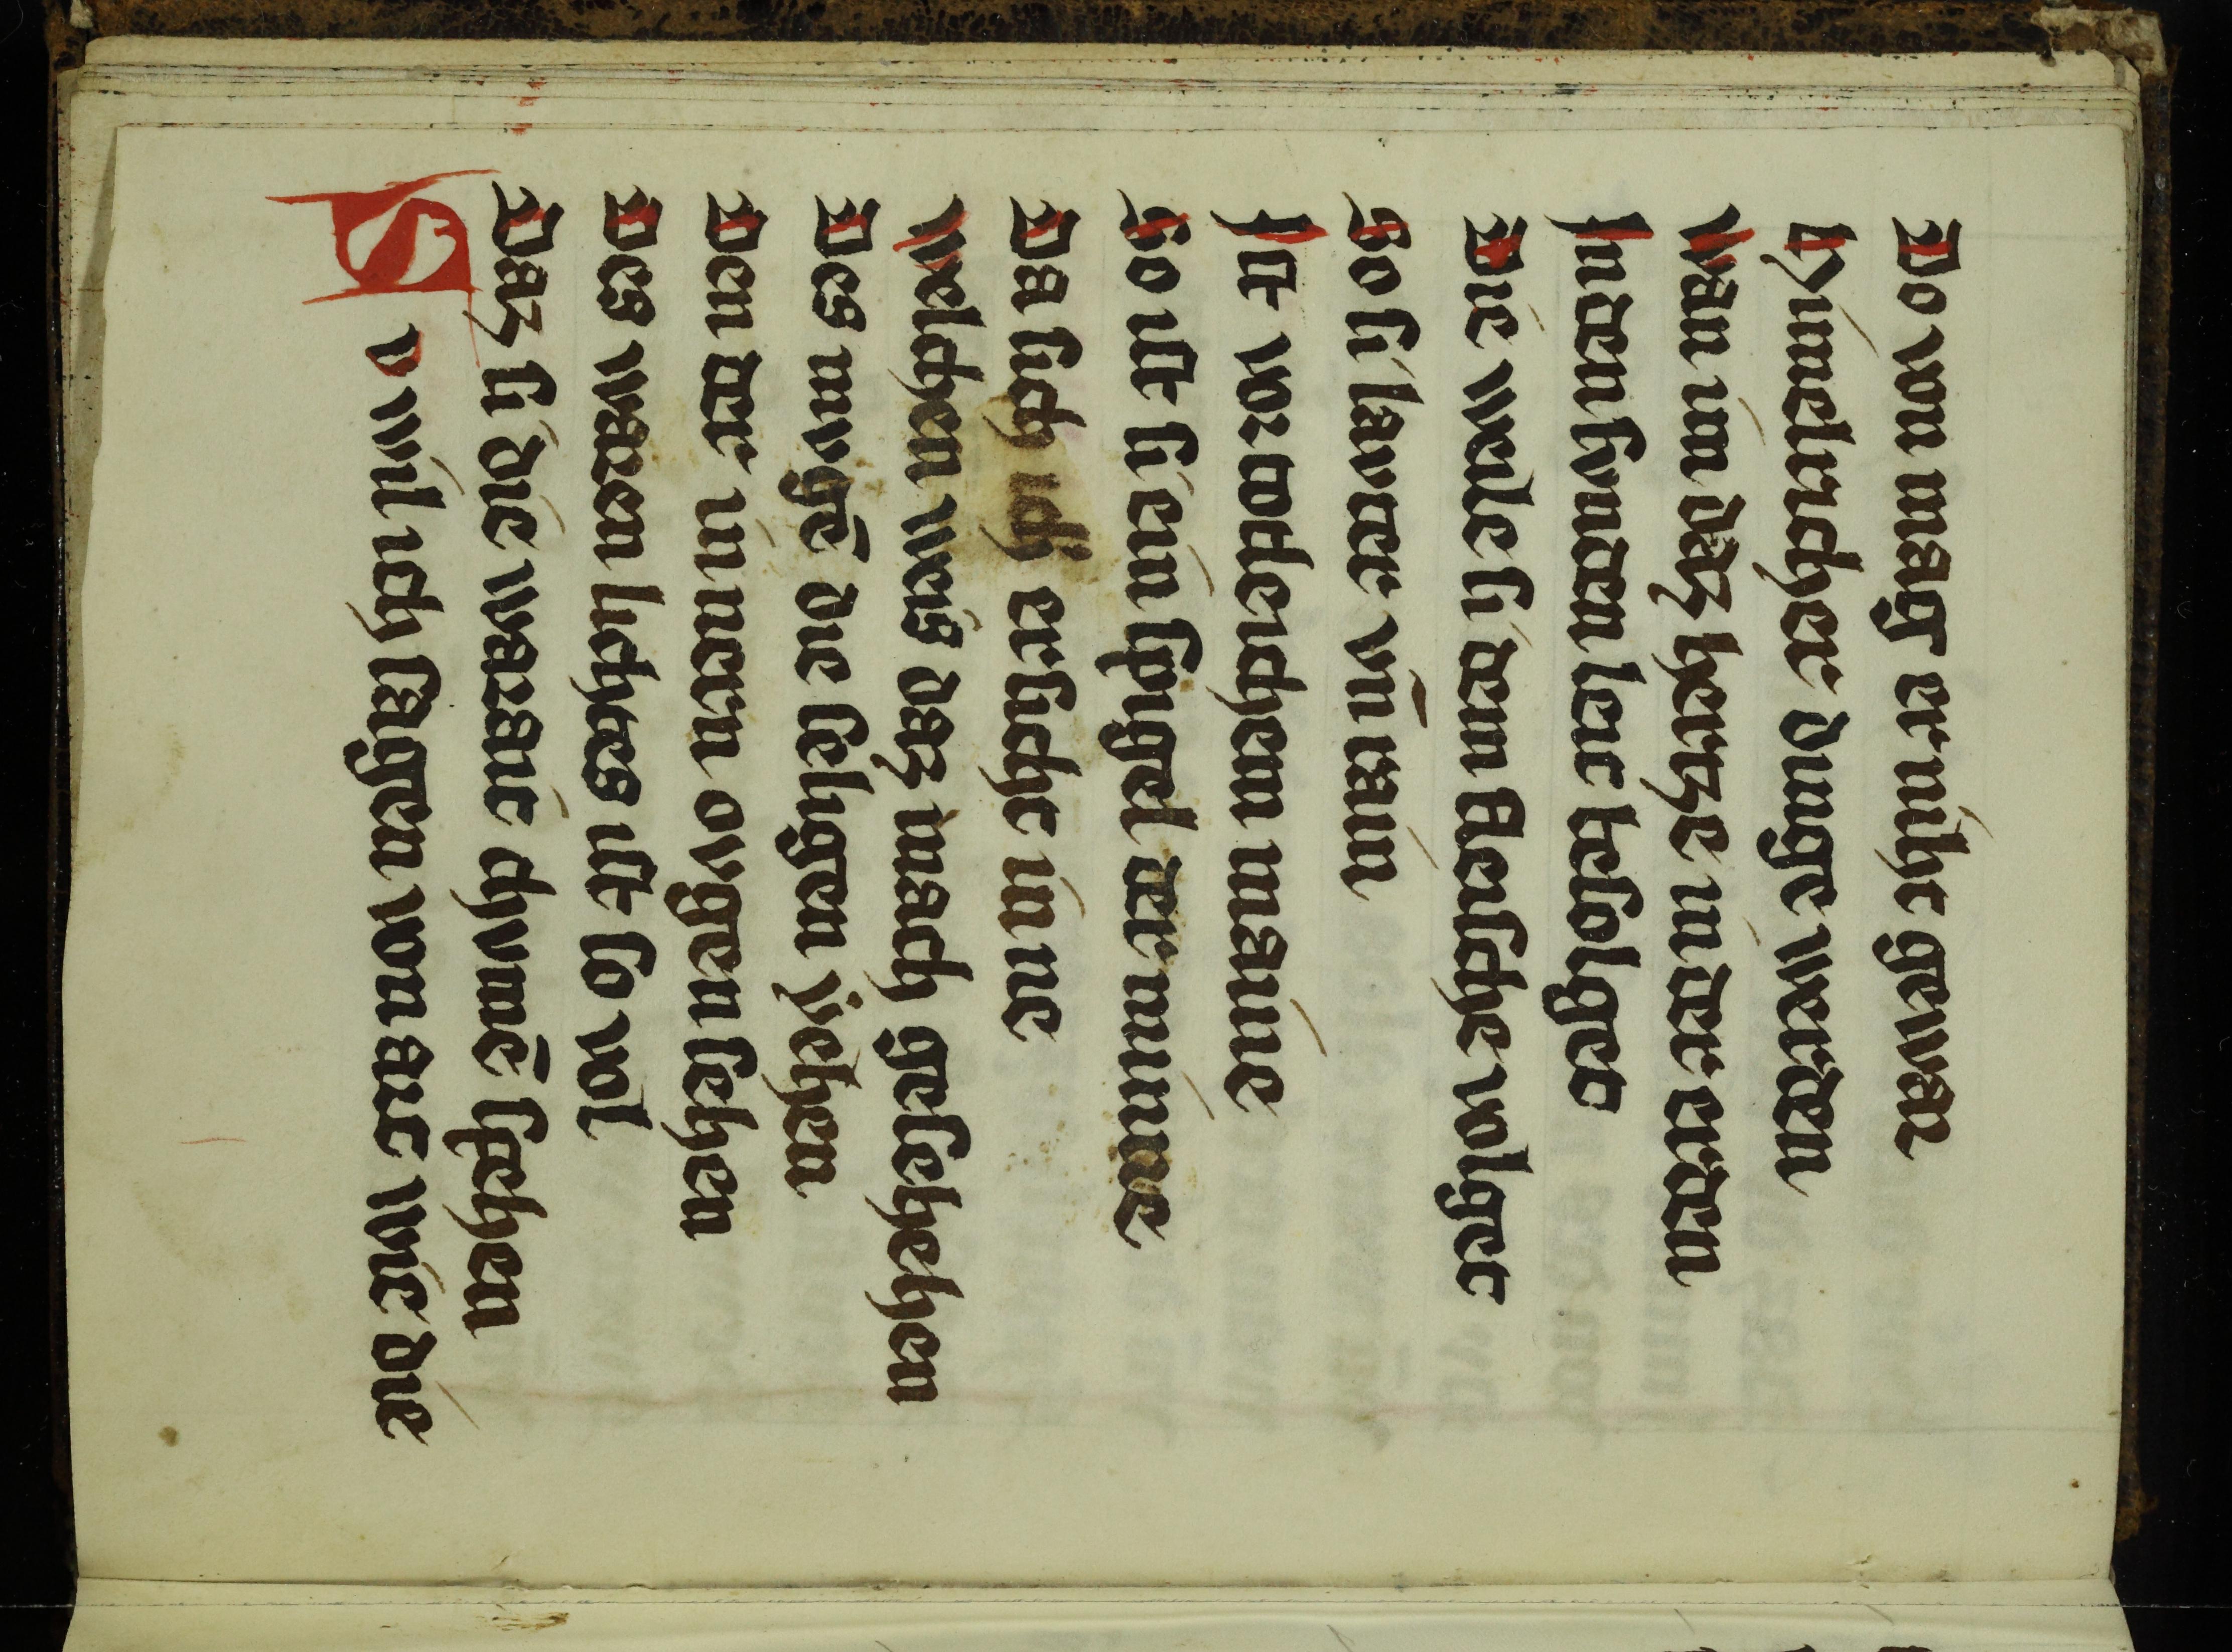 Do von mag er niht gewar
Himelicher dinge werden
Wan im daz hertze in der erden
Inden sunden leit besolget
Die weile si dem fleische volget
So si lauter vn rain
Ist vor totleichem maine
So ist si ein spigel der minne
Da sich ich ersiche inne
Welchen weis daz mach geschehen
Des mvgē die seligen iehen
Den der innern ovgen sehen
Des waren liehtes ist so vol
Daz si die warait chvnnē spehen
Sv wil ich sagen von art wie die